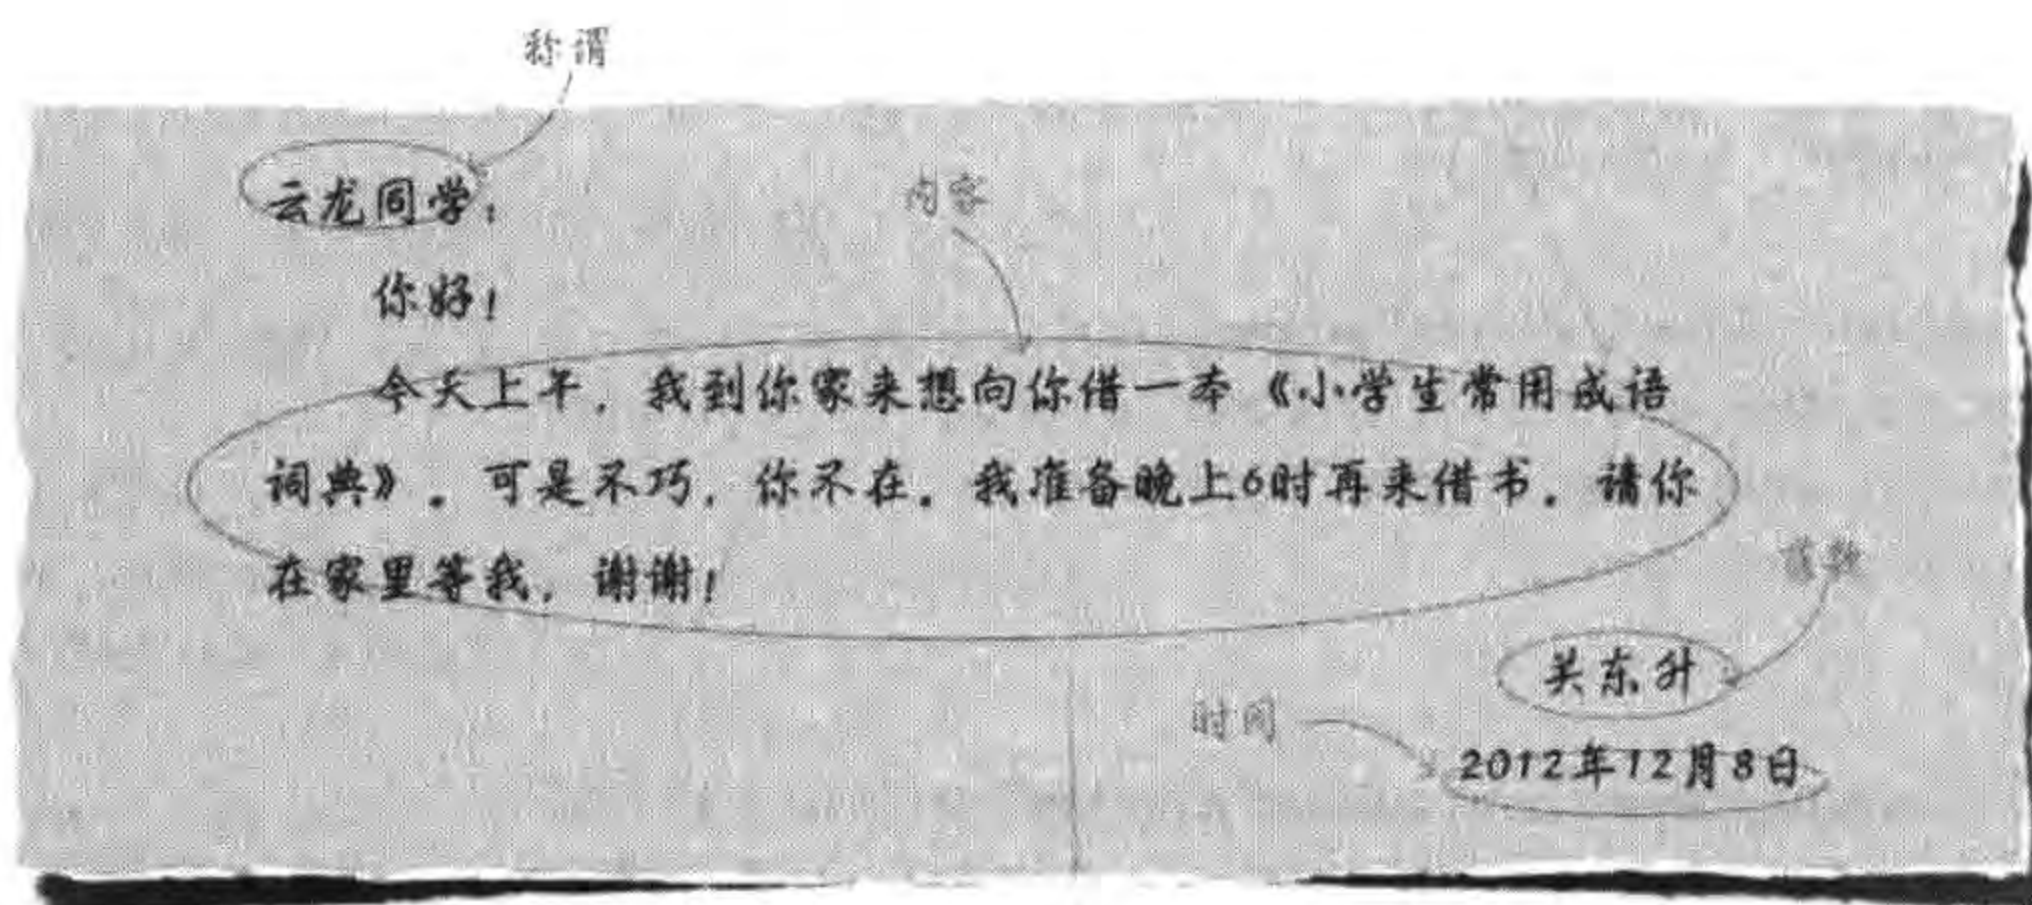 称谓
云龙同学：
内容
你好！
今天上午，我到你家来想向你借一本《小学生常用成语
词典》。可是不巧，你不在。我准备晚上6时再来借书。请你
在家里等我，谢谢！
落款
关东升
时间
2012年12月8日